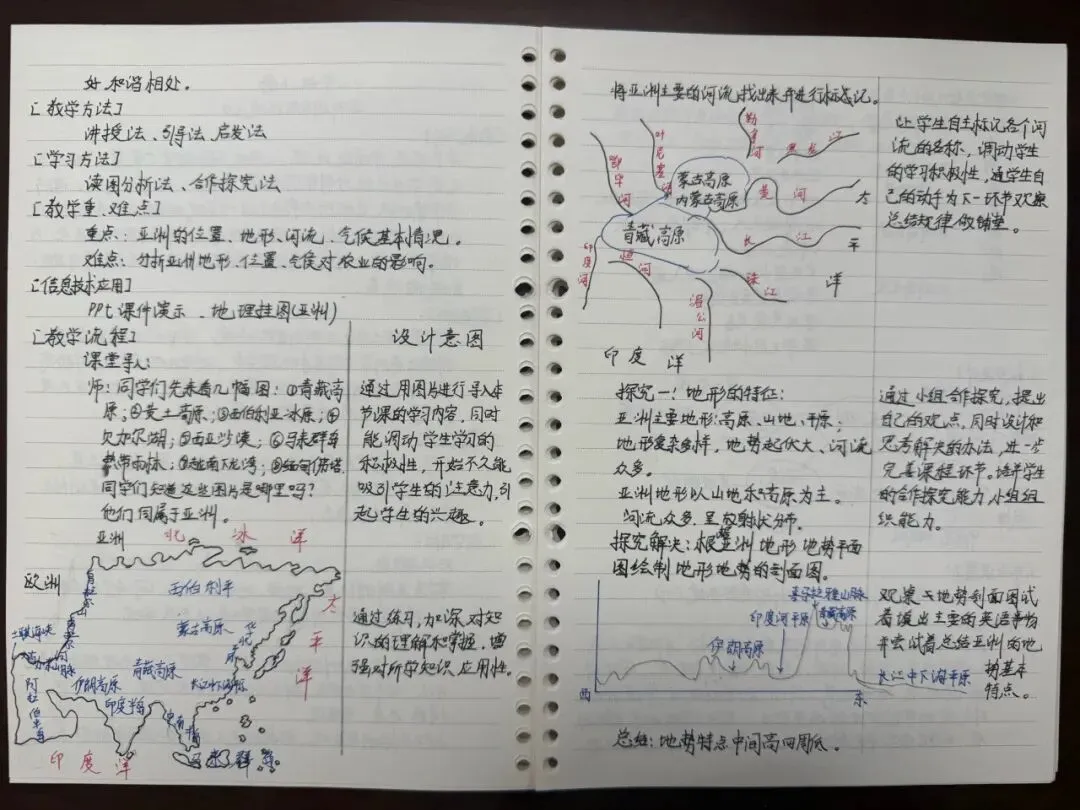 好和谐相处。
[教学方法]
讲授法、引导法、启发法
[学习方法]
读图分析法、合作探究法
[教学重、难点]
重点：亚洲的位置、地形、河流、气候基本情况。
难点：分析亚洲地形、位置、气候对农业的影响。
[信息技术应用]
PPt课件演示、地理挂图(亚洲)
[教学流程]
课堂导入:
师：同学们先来看几幅图：①青藏高
原；②黄土高原；③西伯利亚冰原；④
⑤西亚沙漠；⑥马来群岛
热带雨林；⑦越南下龙湾；⑧缅甸佛塔
同学们知道这些图片是哪里吗？
他们同属于亚洲。
设计意图
通过用图片进行导入本
节课的学习内容，同时
能调动学生学习的
积极性，开始不久能
吸引学生的注意力，引
起学生的兴趣。
亚洲
北冰洋
欧洲
西伯利平
太平洋
蒙古高原
华北
土耳其海峡
青藏高原
伊朗高原
阿拉伯半岛
印度半岛
长江中下游平原
马来群岛
印度洋
通过练习，加深对知
识的理解和掌握，增
强对所学知识应用性。
将亚洲主要的河流找出来并进行标志记。
鄂毕河
叶尼塞河
勒拿河
黑龙江
蒙古高原
内蒙古高原
黄河
太平洋
青藏高原
长江
印度河
恒河
珠江
湄公河
印度洋
让学生自主标记各个河
流的名称，调动学生
的学习积极性，通学生自
己的动手为下一环节观察
总结规律做铺垫。
探究一！地形的特征：
亚洲主要地形：高原、山地、平原；
地形复杂多样，地势起伏大、河流
众多。
亚洲地形以山地和高原为主。
河流众多，呈放射状分布。
探究解决：根据亚洲地形地势平面
图绘制地形地势的剖面图。
通过小组合作探究，提出
自己的观点，同时设计和
思考解决的办法，进一步
完善课程环节。培养学生
的合作探究能力小组组
织能力。
喜马拉雅山脉
印度河平原
青藏高原
伊朗高原
长江中下游平原
西
东
观察
地势剖面图试
着
出主要的
并尝试着总结亚洲的地
势基本
特点。
总结：地势特点中间高四周低。